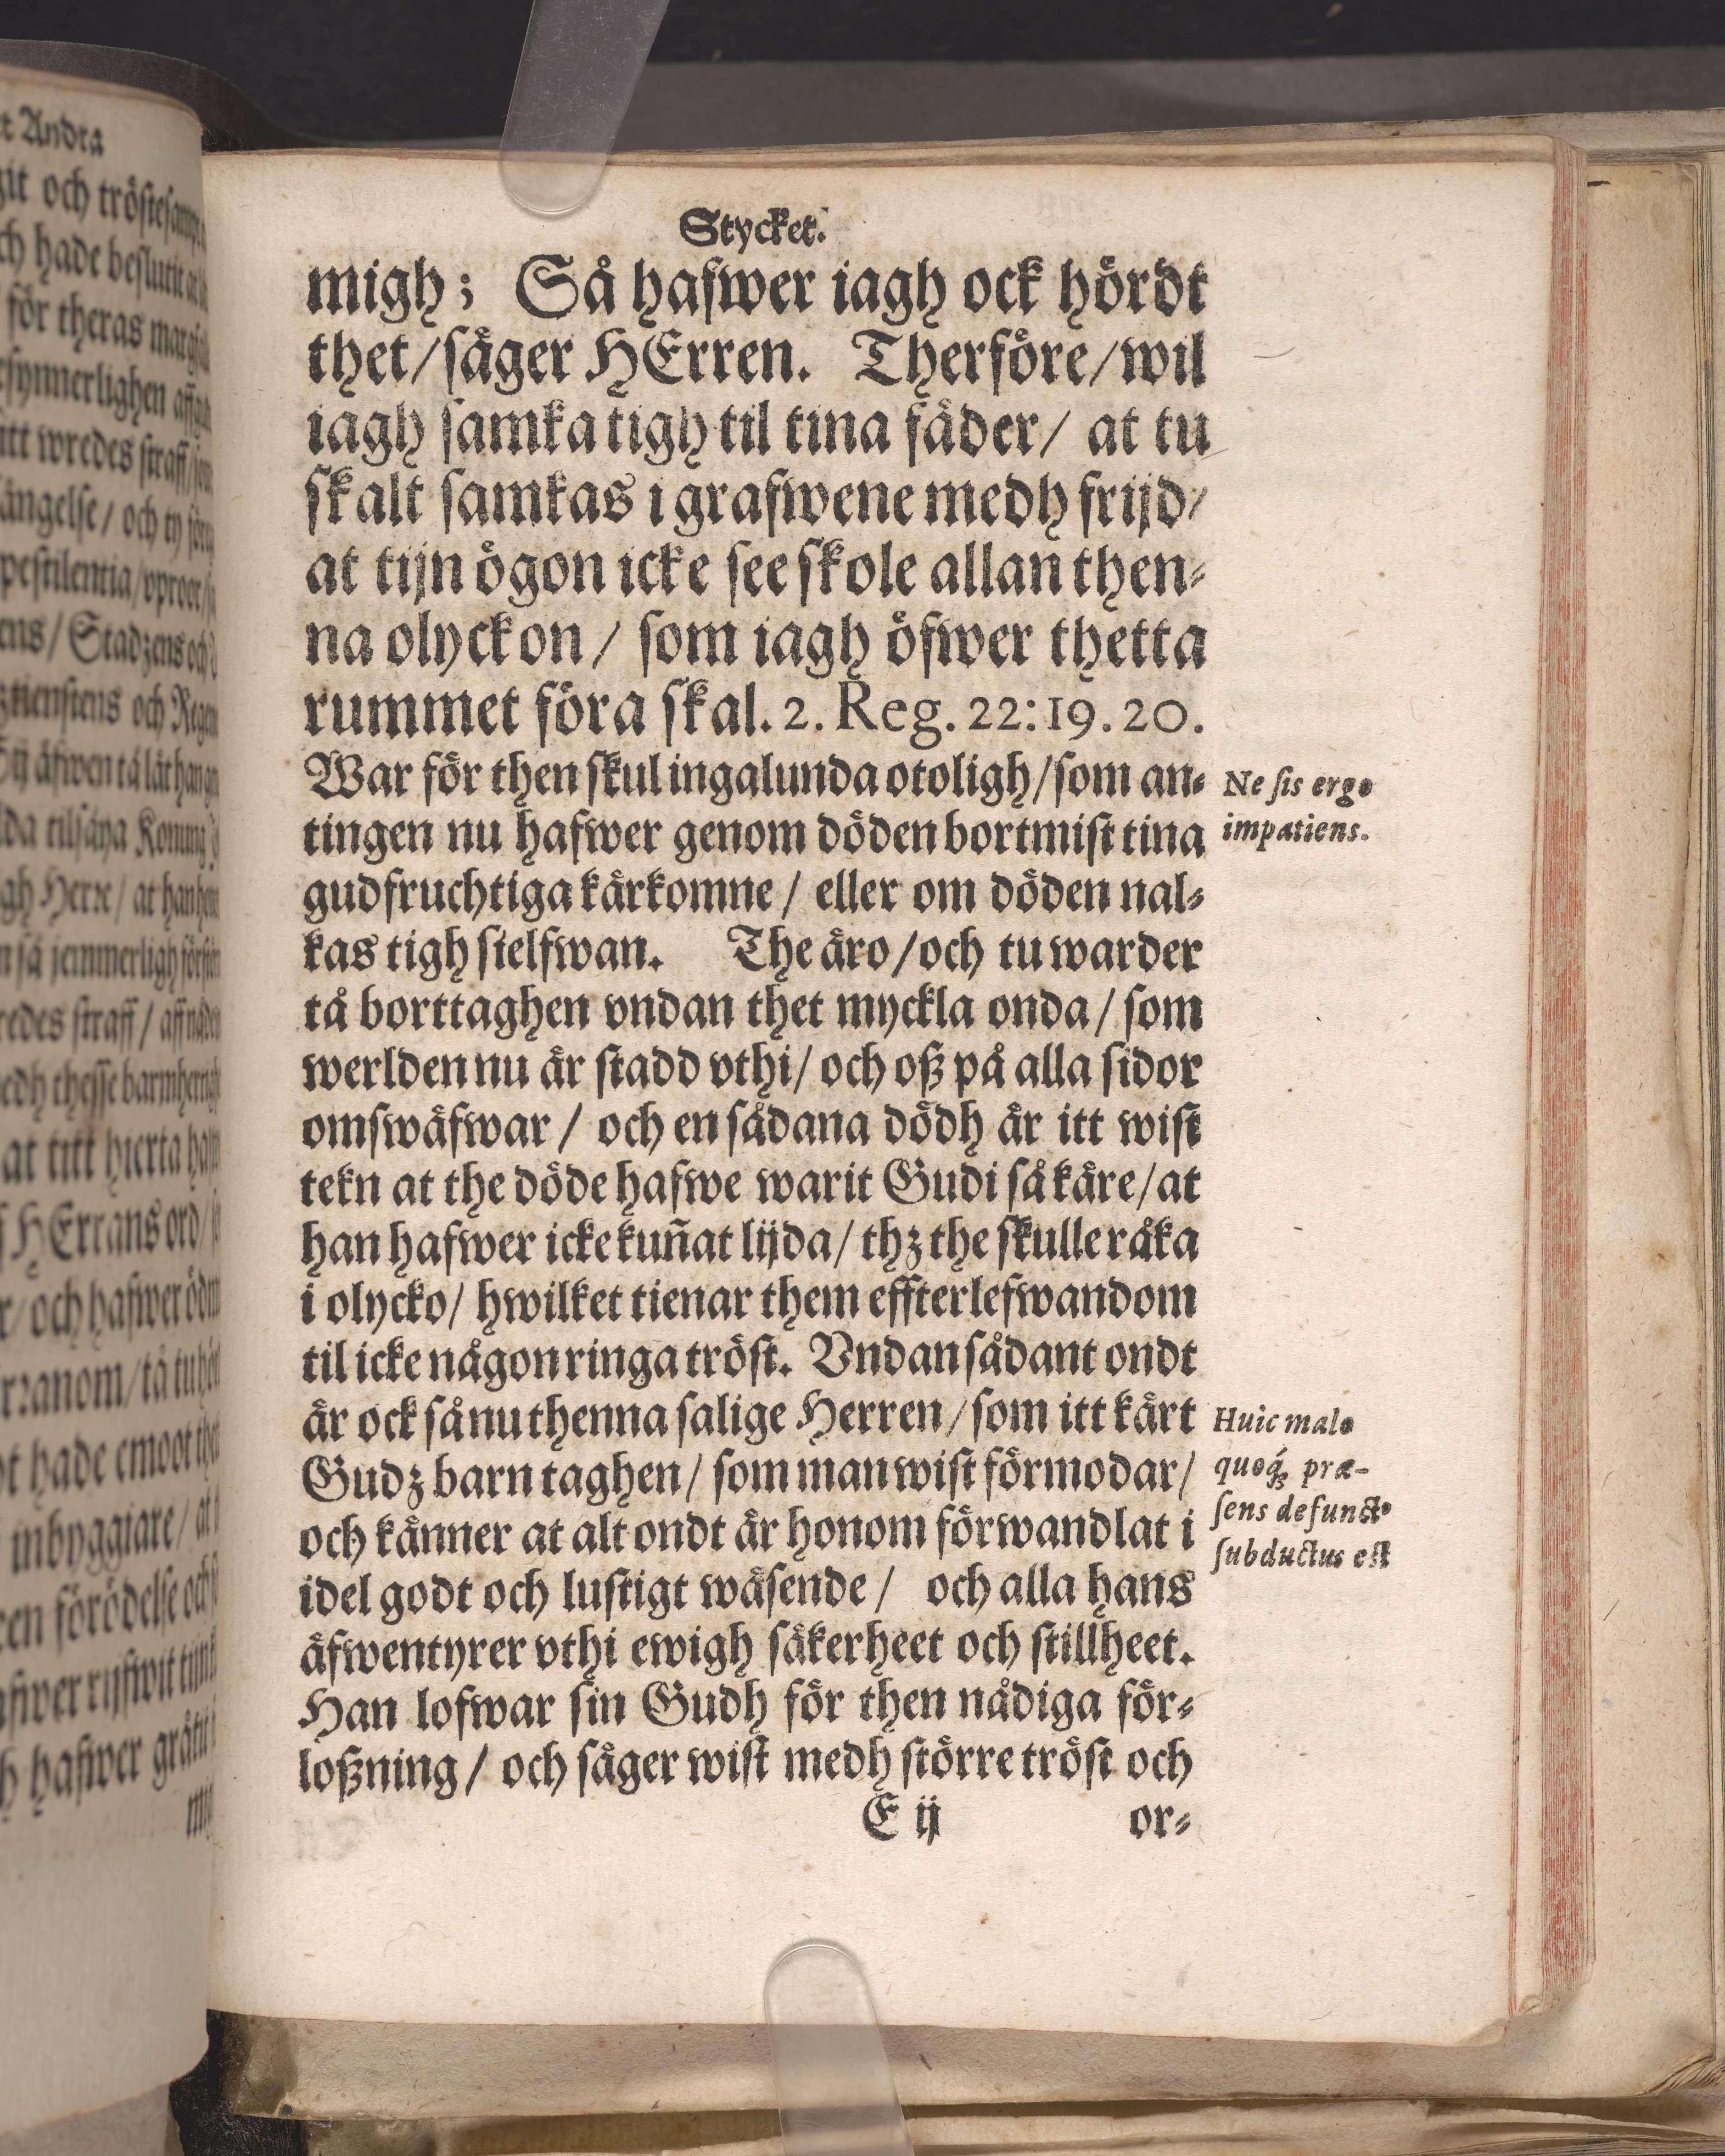 Stycket.
migh; Så hafwer iagh ock hördt
thet/säger HErren. Therföre/wil
iagh samka tigh til tina fäder/ at tu
skalt samkas i grafwene medh frijd/
at tijn ögon icke see skole allan then-
na olyckon/ som iagh öfwer thetta
rummet föra skal. 2. Reg. 22:19.20.
War för then skul ingalunda otoligh/som an-
tingen nu hafwer genom döden bortmist tina
gudfruchtiga kärkomne/ eller om döden nal-
kas tigh sielfwan. The äro/och tu warder
tå borttaghen vndan thet myckla onda/ som
werlden nu är stadd vthi/ och oß på alla sidor
omswäfwar/ och en sådana dödh är itt wist
tekn at the döde hafwe warit Gudi så käre/at
han hafwer icke kuñat lijda/ thz the skulle råka
i olycko/ hwilket tienar them effterlefwandom
til icke någon ringa tröst. Vndan sådant ondt
är ock så nu thenna salige Herren/som itt kärt
Gudz barn taghen/ som man wist förmodar/
och känner at alt ondt är honom förwandlat i
idel godt och lustigt wäsende/ och alla hans
äfwentyrer vthi ewigh säkerheet och stillheet.
Han lofwar sin Gudh för then nådiga för-
loßning/ och säger wist medh större tröst och
E ij or-
Ne sis ergo
impatiens.
Huic malo
quoq́; præ-
sens defunct9
subductus est
et Andra
och tröstesam
hade beslutit
för theras
synnerlighen
itt wredes straff/
ängelse/ och ty
pestilentia/vproer/
ens/ Stadzens och
och
äfwen tå lät han
tilsäya Konung
Herre/ at han
så jemmerligh
redes straff/ aff
medh thesse
at titt hierta
HErrans ord/
och hafwer
tå tu
hade emoot
inbyggiare/ at
förödelse och
hafwer